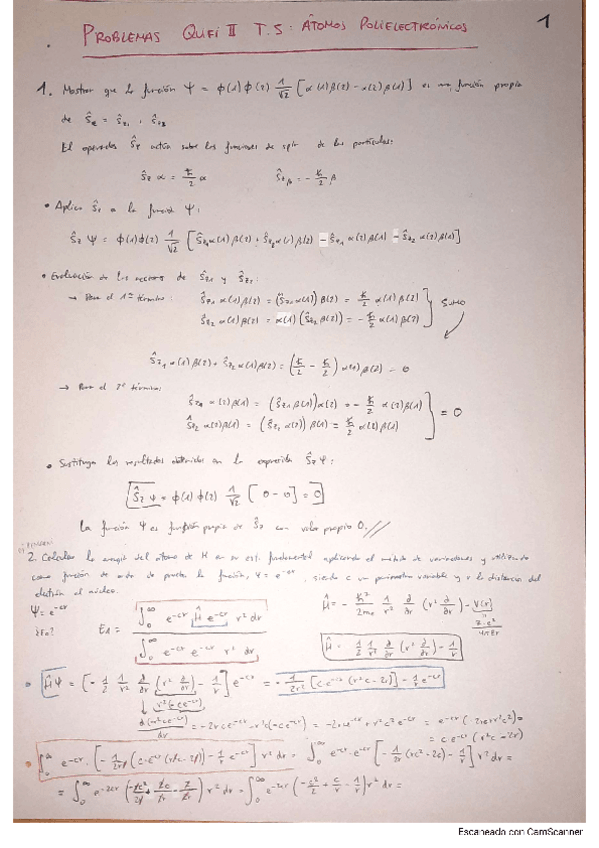 PROBLEMAS QUFI II T.5: ÁTOMOS POLIELECTRÓNICOS
1
1. Mostrar que la función Ψ = ϕ(1)ϕ(2) 1/√2 [α(1)β(2) - α(2)β(1)] es una función propia
de Ŝz = Ŝz1 + Ŝz2
El operador Ŝz actúa sobre las funciones de spin de las partículas:
Ŝz α = ħ/2 α Ŝz β = - ħ/2 β
• Aplico Ŝz a la función Ψ:
Ŝz Ψ = ϕ(1)ϕ(2) 1/√2 [Ŝz1 α(1)β(2) + Ŝz2 α(1)β(2) - Ŝz1 α(2)β(1) - Ŝz2 α(2)β(1)]
• Evaluación de las acciones de Ŝz1 y Ŝz2:
→ Para el 1er término: Ŝz1 α(1)β(2) = (Ŝz1 α(1)) β(2) = ħ/2 α(1)β(2)
Ŝz2 α(1)β(2) = α(1) (Ŝz2 β(2)) = - ħ/2 α(1)β(2)
Sumo
Ŝz1 α(1)β(2) + Ŝz2 α(1)β(2) = (ħ/2 - ħ/2) α(1)β(2) = 0
→ Para el 2º término: Ŝz1 α(2)β(1) = (Ŝz1 β(1)) α(2) = - ħ/2 α(2)β(1)
Ŝz2 α(2)β(1) = (Ŝz2 α(2)) β(1) = ħ/2 α(2)β(1)
= 0
• Sustituyo los resultados obtenidos en la expresión Ŝz Ψ:
Ŝz Ψ = ϕ(1)ϕ(2) 1/√2 [0 - 0] = 0
La función Ψ es función propia de Ŝz con valor propio 0. //
2. Calcular la energía del átomo de H en su est. fundamental aplicando el método de variaciones y utilizando
como función de onda de prueba la función, Ψ = e^-cr, siendo c un parámetro variable y r la distancia del
electrón al núcleo.
Ψ = e^-cr
E1 = ∫₀^∞ e^-cr Ĥ e^-cr r² dr / ∫₀^∞ e^-cr e^-cr r² dr
Ĥ = - ħ²/2me 1/r² ∂/∂r (r² ∂/∂r) - V(r)
Z·e²/4πεr
Ĥ = - 1/2 1/r² ∂/∂r (r² ∂/∂r) - 1/r
• ĤΨ = [- 1/2 1/r² ∂/∂r (r² ∂/∂r) - 1/r] e^-cr = - 1/2r² [c e^-cr (r²c - 2r)] - 1/r e^-cr
= -2rc e^-cr - r²c(-c e^-cr) = -2rc e^-cr + r²c² e^-cr = e^-cr (-2rc + r²c²) =
= c e^-cr (r²c - 2r)
• ∫₀^∞ e^-cr · [- 1/2r² (c·e^-cr (r²c - 2r)) - 1/r e^-cr] r² dr = ∫₀^∞ e^-cr · e^-cr [- 1/2r (rc² - 2c) - 1/r] r² dr =
= ∫₀^∞ e^-2cr (- rc²/2r + 2c/2r - 1/r) r² dr = ∫₀^∞ e^-2cr (- c²/2 + c/r - 1/r) r² dr =
Escaneado con CamScanner